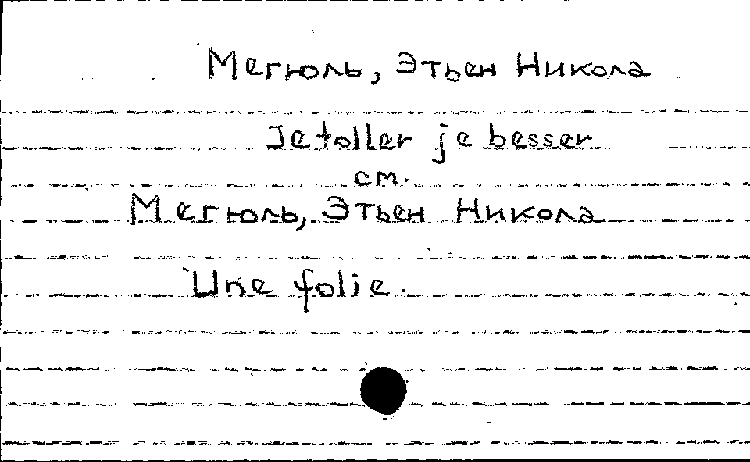 Мегюль, Этьен Никола
Je toller je besser
см.
Мегюль, Этьен Никола
Une folie.